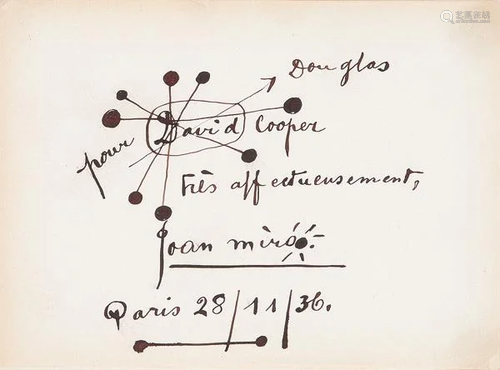 Douglas
pour David Cooper
très affectueusement,
Joan Miró.
Paris 28/11/36.